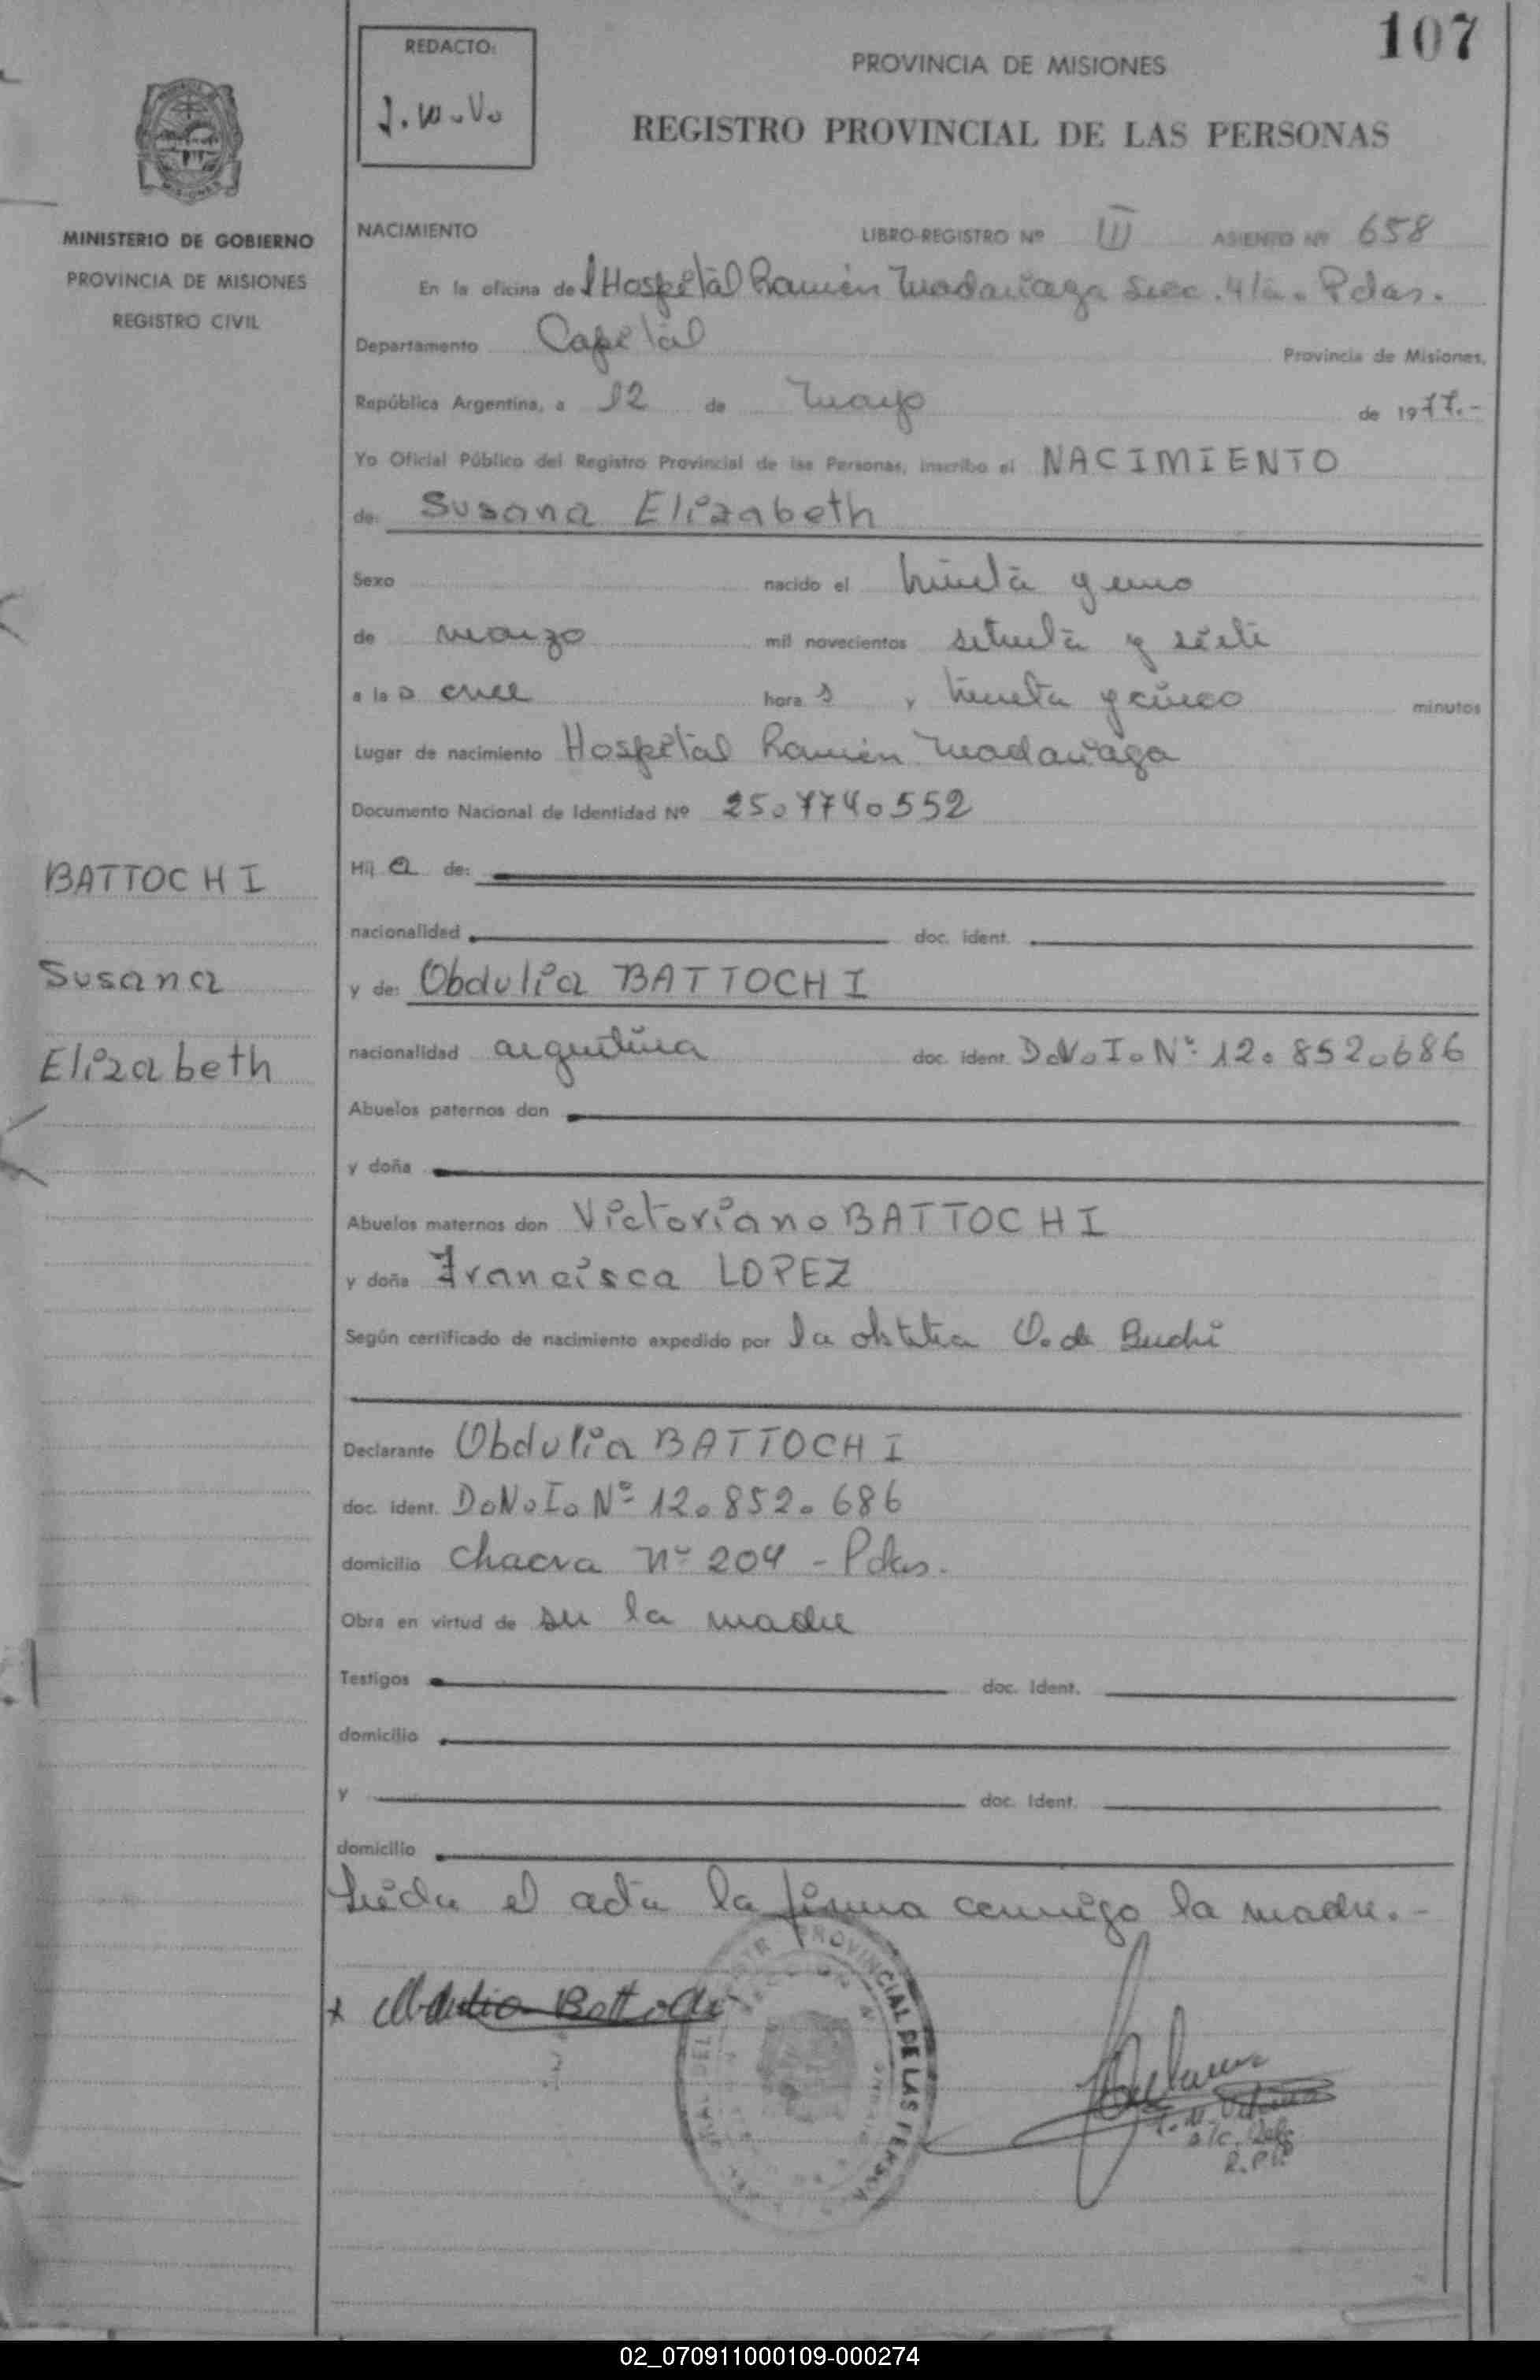 107
REDACTO:
J. W. V.
PROVINCIA DE MISIONES
REGISTRO PROVINCIAL DE LAS PERSONAS
MINISTERIO DE GOBIERNO
PROVINCIA DE MISIONES
REGISTRO CIVIL
NACIMIENTO LIBRO-REGISTRO Nº III ASIENTO Nº 658
En la oficina del Hospital Ramón Madariaga Secc. 4ta. Pdas.
Departamento Capital Provincia de Misiones,
República Argentina, a 12 de mayo de 1977.-
Yo Oficial Público del Registro Provincial de las Personas, inscribo el NACIMIENTO
de: Susana Elizabeth
Sexo nacido el treinta y uno
de marzo mil novecientos setenta y siete
a las once horas y treinta y cinco minutos
Lugar de nacimiento Hospital Ramón Madariaga
Documento Nacional de Identidad Nº 25.774.552
Hija de:
nacionalidad doc. ident.
y de: Obdulia BATTOCHI
nacionalidad argentina doc. ident. D.N.I. Nº 12.852.686
Abuelos paternos don
y doña
Abuelos maternos don Victoriano BATTOCHI
y doña Francisca LOPEZ
Según certificado de nacimiento expedido por la obstetra O. de
Declarante Obdulia BATTOCHI
doc. ident. D.N.I. Nº 12.852.686
domicilio Chacra nº 204 - Pdas.
Obra en virtud de ser la madre
Testigos doc. ident.
domicilio
y doc. ident.
domicilio
BATTOCHI
Susana
Elizabeth
Leída el acta la firma conmigo la madre.-
x Obdulia Battochi
PROVINCIAL DE LAS PERSONAS
02_070911000109-000274